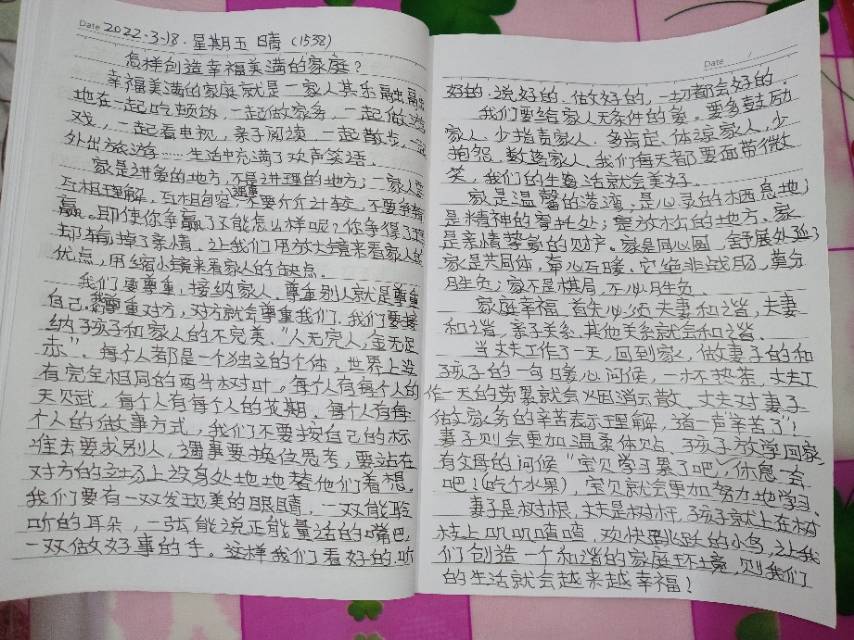 Date 2022.3.18. 星期五 晴 (1538)
怎样创造幸福美满的家庭？
幸福美满的家庭就是一家人其乐融融
地在一起吃顿饭，一起做家务，一起做游
戏，一起看电视，亲子阅读，一起散步，一起
外出旅游……生活中充满了欢声笑语。
家是讲爱的地方，不是讲理的地方；一家人要
互相理解，互相包容，不要斤斤计较，不要争输
赢。即使你争赢了又能怎么样呢？你争得了理
却输掉了亲情。让我们用放大镜来看家人的
优点，用缩小镜来看家人的缺点。
我们要尊重、接纳家人。尊重别人就是尊重
自己，我尊重对方，对方就会尊重我们。我们要接
纳孩子和家人的不完美，“人无完人，金无足
赤”。每个人都是一个独立的个体，世界上没
有完全相同的两片树叶。每个人有每个人的
天赋，每个人有每个人的花期，每个人有每
个人的做事方式，我们不要按自己的标
准去要求别人，遇事要换位思考，要站在
对方的立场上设身处地地替他们着想。
我们要有一双发现美的眼睛，一双能聆
听的耳朵，一张能说正能量话的嘴巴，
一双做好事的手。这样我们看好的，听
Date
好的，说好的，做好的，一切都会好的。
我们要给家人无条件的爱。要多鼓励
家人，少指责家人，多肯定、体谅家人，少
抱怨、数落家人，我们每天都要面带微
笑，我们的生活就会美好。
家是温馨的港湾，是心灵的栖息地；
是精神的寄托处；是放松的地方。家
是亲情攀爱的财产。家是同心圆，舒展外延；
家是共同体，牵心互暖。它绝非战场，莫分
胜负；家不是棋局，不必胜负
家庭幸福，首先必须夫妻和谐，夫妻
和谐，亲子关系、其他关系就会和谐。
当丈夫工作了一天，回到家，做妻子的和
孩子的一句暖心问候，一杯热茶，丈夫工
作一天的劳累就会烟消云散。丈夫对妻子
做家务的辛苦表示理解，道一声辛苦了！
妻子则会更加温柔体贴。孩子放学回家，
有父母的问候“宝贝学习累了吧，休息一会
吧！(吃个水果)，宝贝就会更加努力地学习。
妻子是树根，丈夫是树杆，孩子就上在树
枝上叽叽喳喳，欢快跳跃的小鸟，让我
们创造一个和谐的家庭环境，则我们
的生活就会越来越幸福！